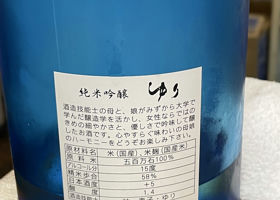 純米吟醸 ゆり
酒造技能士の母と、娘がみずから大学で
学んだ醸造学を活かし、女性ならではの
きめの細やかさと、優しさで吟味して醸
したお酒です。心やすらぐ味わいの母娘
のハーモニーをどうぞお楽しみ下さい。
原材料名 米(国産)、米麹(国産米)
原料米 五百万石100%
アルコール分 15度
精米歩合 58%
日本酒度 +5
酸度 1.4
酒造技能士 ・ゆり